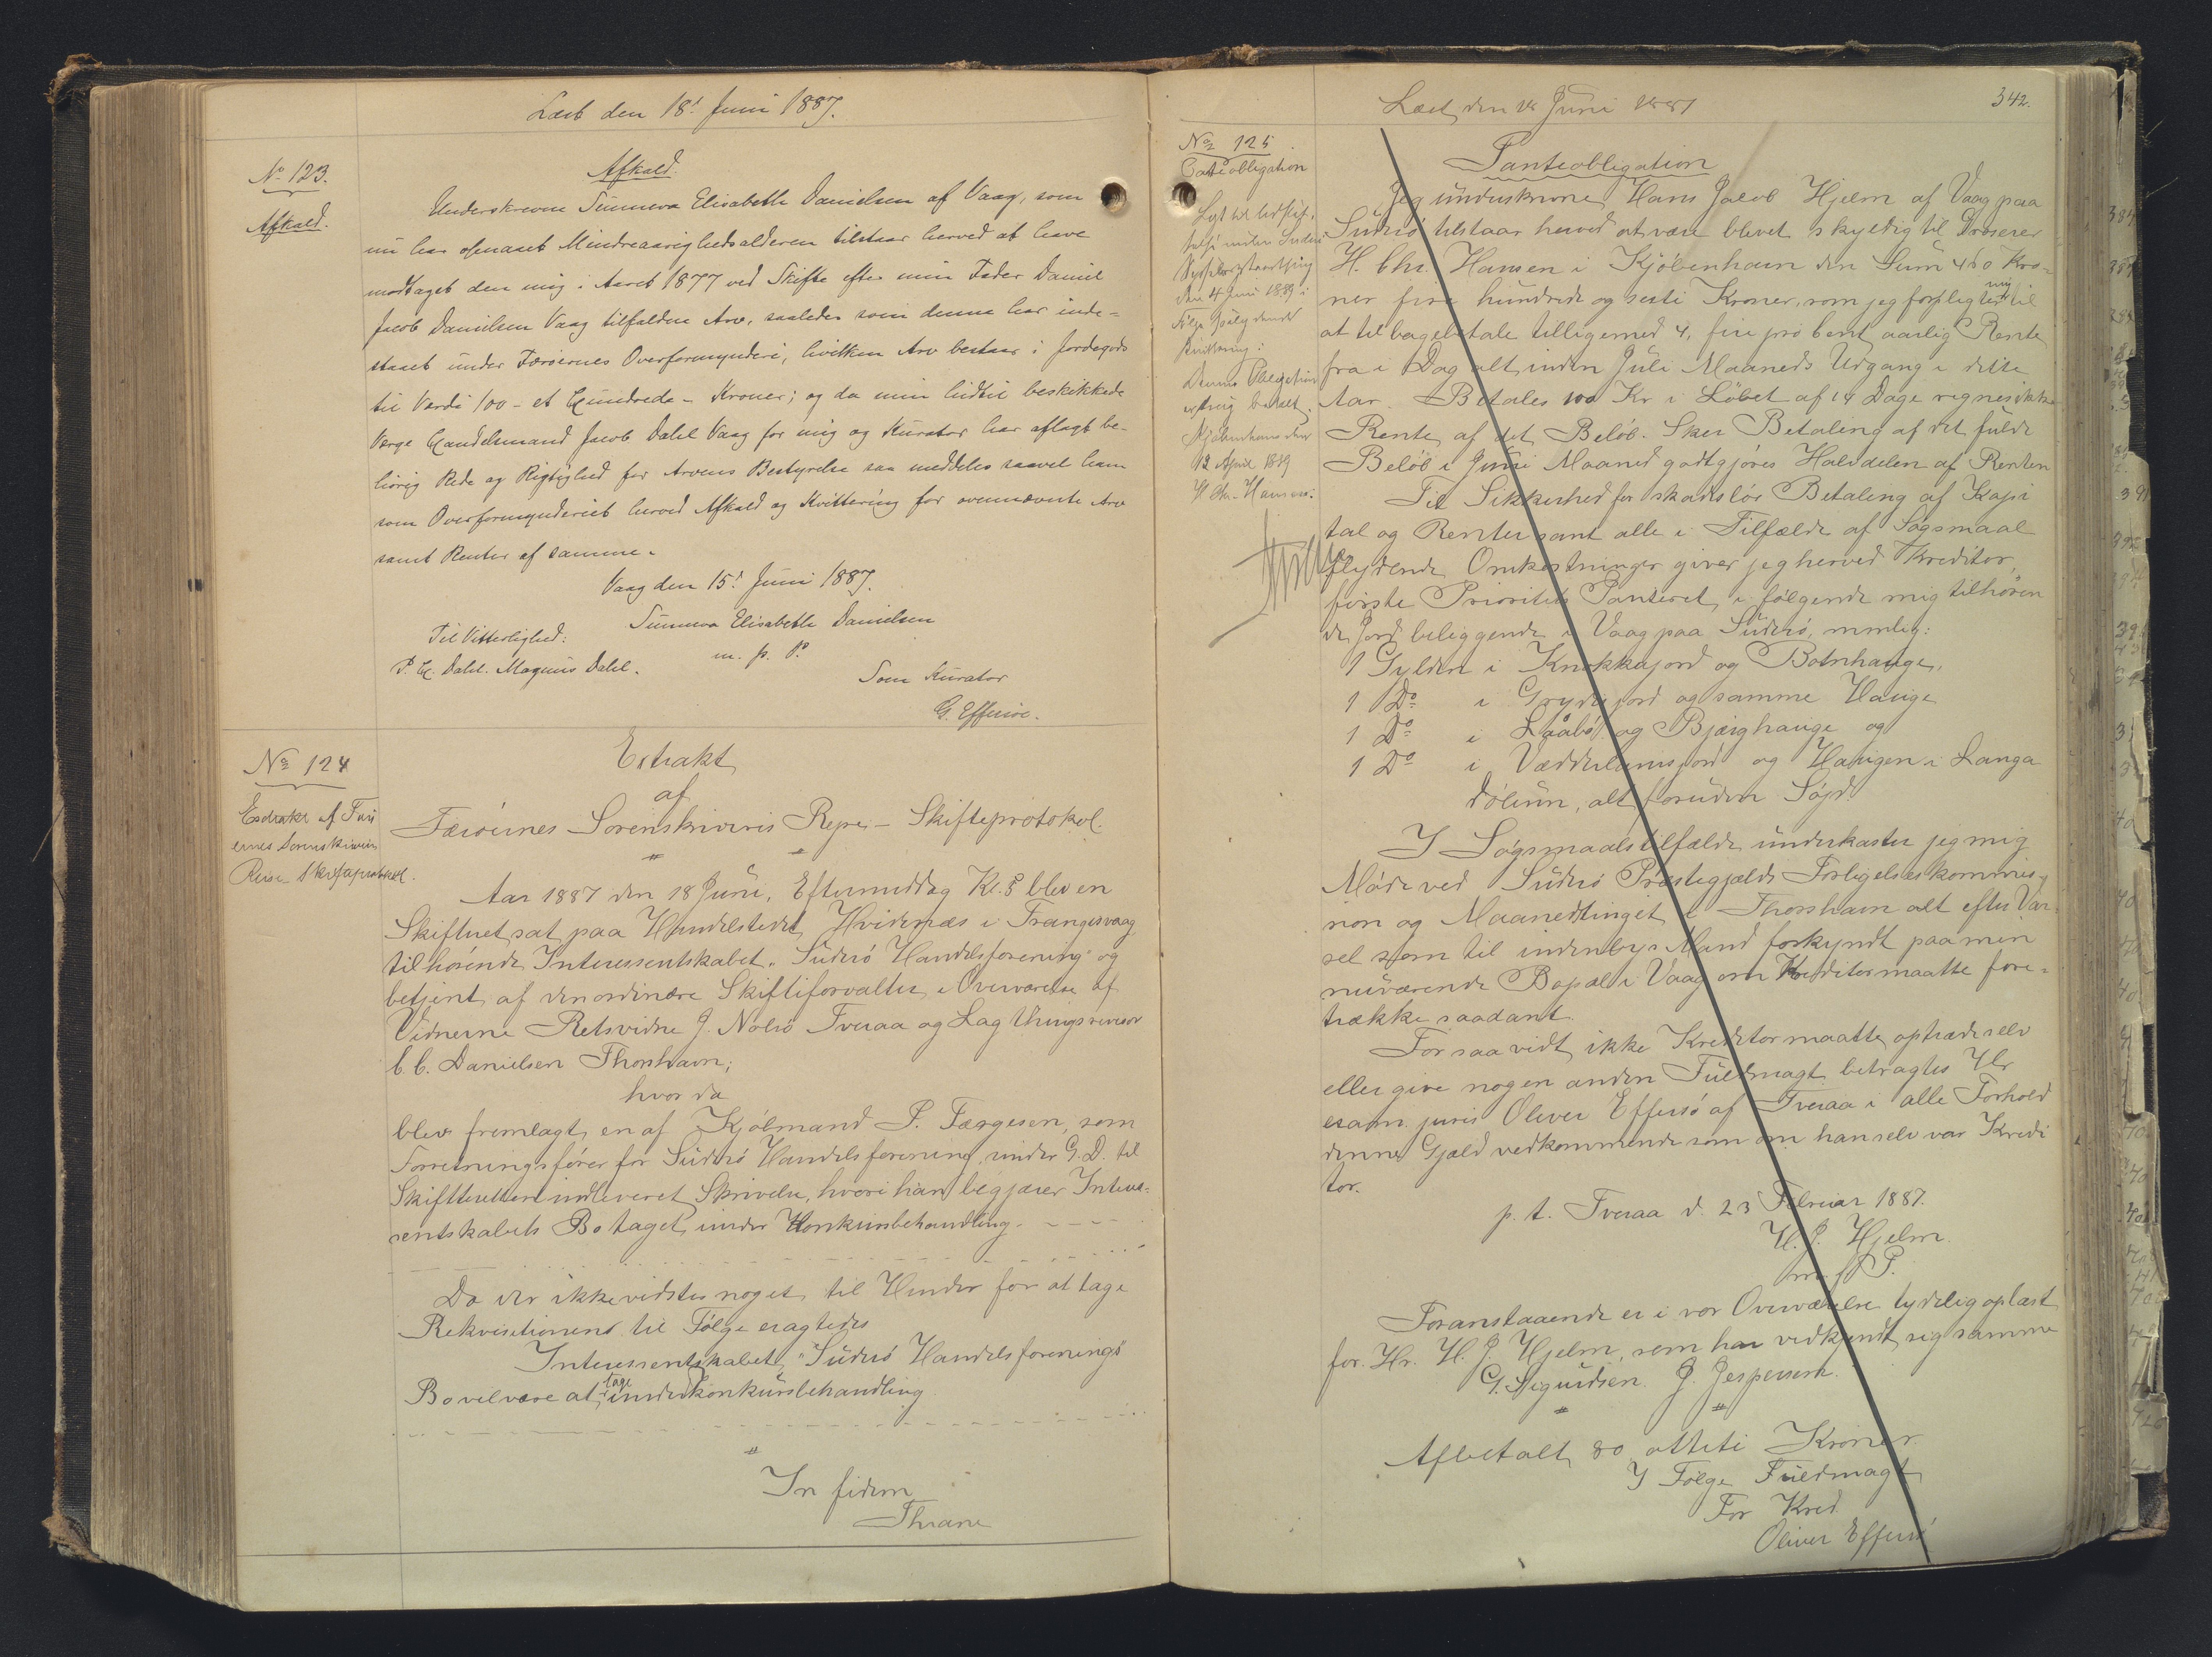 Læst den 18' Juni 1887.
No 123.
Afkald.
Afkald.
Underskrevne Sunneva Elisabeth Danielsen af Vaag, som
nu har opnaaet Mindreaarighedsalderen tilstaar herved at have
modtaget den mig i Aaret 1877 ved Skifte efter min Fader Daniel
Jacob Danielsen Vaag tilfaldne Arv, saaledes som denne har inde-
staaet under Færöernes Overformynderi, hvilken Arv bestaar i Jordegods
til Værdi 100 - et Hundrede - Kroner; og da min hidtil beskikkede
Værge Handelsmand Jacob Dahl Vaag for mig og Kurator har aflagt be-
hörig Rede og Rigtighed for Arvens Bestyrelse saa meddeles saavel ham
som Overformynderiet herved Afkald og Kvittering for ovennævnte Arv
samt Renter af samme.
Vaag den 15' Juni 1887.
Sunneva Elisabeth Danielsen
m. p. P.
Til Vitterlighed:
P. H. Dahl. Magnus Dahl.
Som Kurator
G. Effersöe.
No 124
Esdrakt af Færö
ernes Sorenskriveris
Reise-Skifteprotokol.
Extrakt
af
Færöernes Sorenskriveris Rejse-Skifteprotokol.
Aar 1887 den 18 Juni, Eftermiddag Kl. 8 blev en
Skifteret sat paa Handelstedet Hvidenæs i Trangisvaag
tilhörende Interessentskabet "Suderö Handelsforening" og
betjent af den ordinære Skifteforvalter i Overværelse af
Vidnerne Retsvidne J. Nolsö Tveraa og Lagthingsrevisor
C. C. Danielsen Thorshavn;
hvor da
blev fremlagt en af Kjöbmand P. Færgesen, som
Forretningsförer for Suderö Handelsforening under G. D. til
Skifteretten indleveret Skrivelse, hvori han begjærer Interes-
sentskabets Bo taget under Konkursbehandling. - - -
Da der ikke vidstes noget til Hinder for at tage
Rekvisitionen til Fölge eragtedes
Interessentskabet "Suderö Handelsforenings"
Bo vel være at tage under Konkursbehandling
In fidem
Thrane
342.
Læst den 18 Juni 1887
No 125.
Panteobligation
Lyst til Udslet-
telse under Suderö
Sysselvaartsting
den 4 Juni 1889 i
Fölge saalydende
Kvittering:
Denne Obligation
er mig betalt.
Kjöbenhavn den
12 April 1889
H. Chr. Hansen.
Panteobligation
Jeg underskrevne Hans Jacob Hjelm af Vaag paa
Suderö tilstaar herved at være blevet skyldig til Proserer
H. Chr. Hansen i Kjöbenhavn den Sum 460 Kro-
ner fire hundrede og sexti Kroner, som jeg forpligter mig til
at tilbagebetale tilligemed 4, fire pro Cent aarlig Rente
fra i Dag alt inden Juli Maaneds Udgang i dette
Aar. Betales 100 Kr i Löbet af 14 Dage regnes ikke
Rente af det Belöb. Sker Betaling af det fulde
Belöb i Juni Maaned godtgjöres Halvdelen af Renten
Til Sikkerhed for skadeslös Betaling af Kapi
tal og Renter samt alle i Tilfælde af Sögsmaal
flydende Omkostninger giver jeg herved Kreditor,
förste Prioritets Panteret i fölgende mig tilhören
de Jord beliggende i Vaag paa Suderö, nemlig:
1 Gylden i Knokkajord og Botnhauge,
1 Do i Grydejord og samme Hauge
1 Do i Laabö og Bjærghauge og
1 Do i Vædderlamsjord og Haugen i Langa
dölum, alt foruden Söjd.
I Sögsmaalstilfælde underkaster jeg mig
Möde ved Suderö Præstegjælds Forligelseskommis-
sion og Maanedtinget i Thorshavn alt efter Var-
sel som til indenbys Mand forkyndt paa min
nuværende Bopæl i Vaag om Kreditor maatte fore-
trække saadant.
For saa vidt ikke Kreditor maatte optræde selv
eller give nogen anden Fuldmagt betragtes Hr
exam. juris Oliver Effersö af Tveraa i alle Forhold
denne Gjæld vedkommende som om han selv var Kredi
tor.
p. t. Tveraa d. 23 Februar 1887.
H. J. Hjelm.
m. p. P.
Foranstaaende er i vor Overværelse tydelig oplæst
for Hr. H. J. Hjelm, som har vedkjendt sig samme
G. Sigurdsen. J. Jespersen.
Afbetalt 80 otteti Kroner
I Fölge Fuldmagt
For Kred.
Oliver Effersö